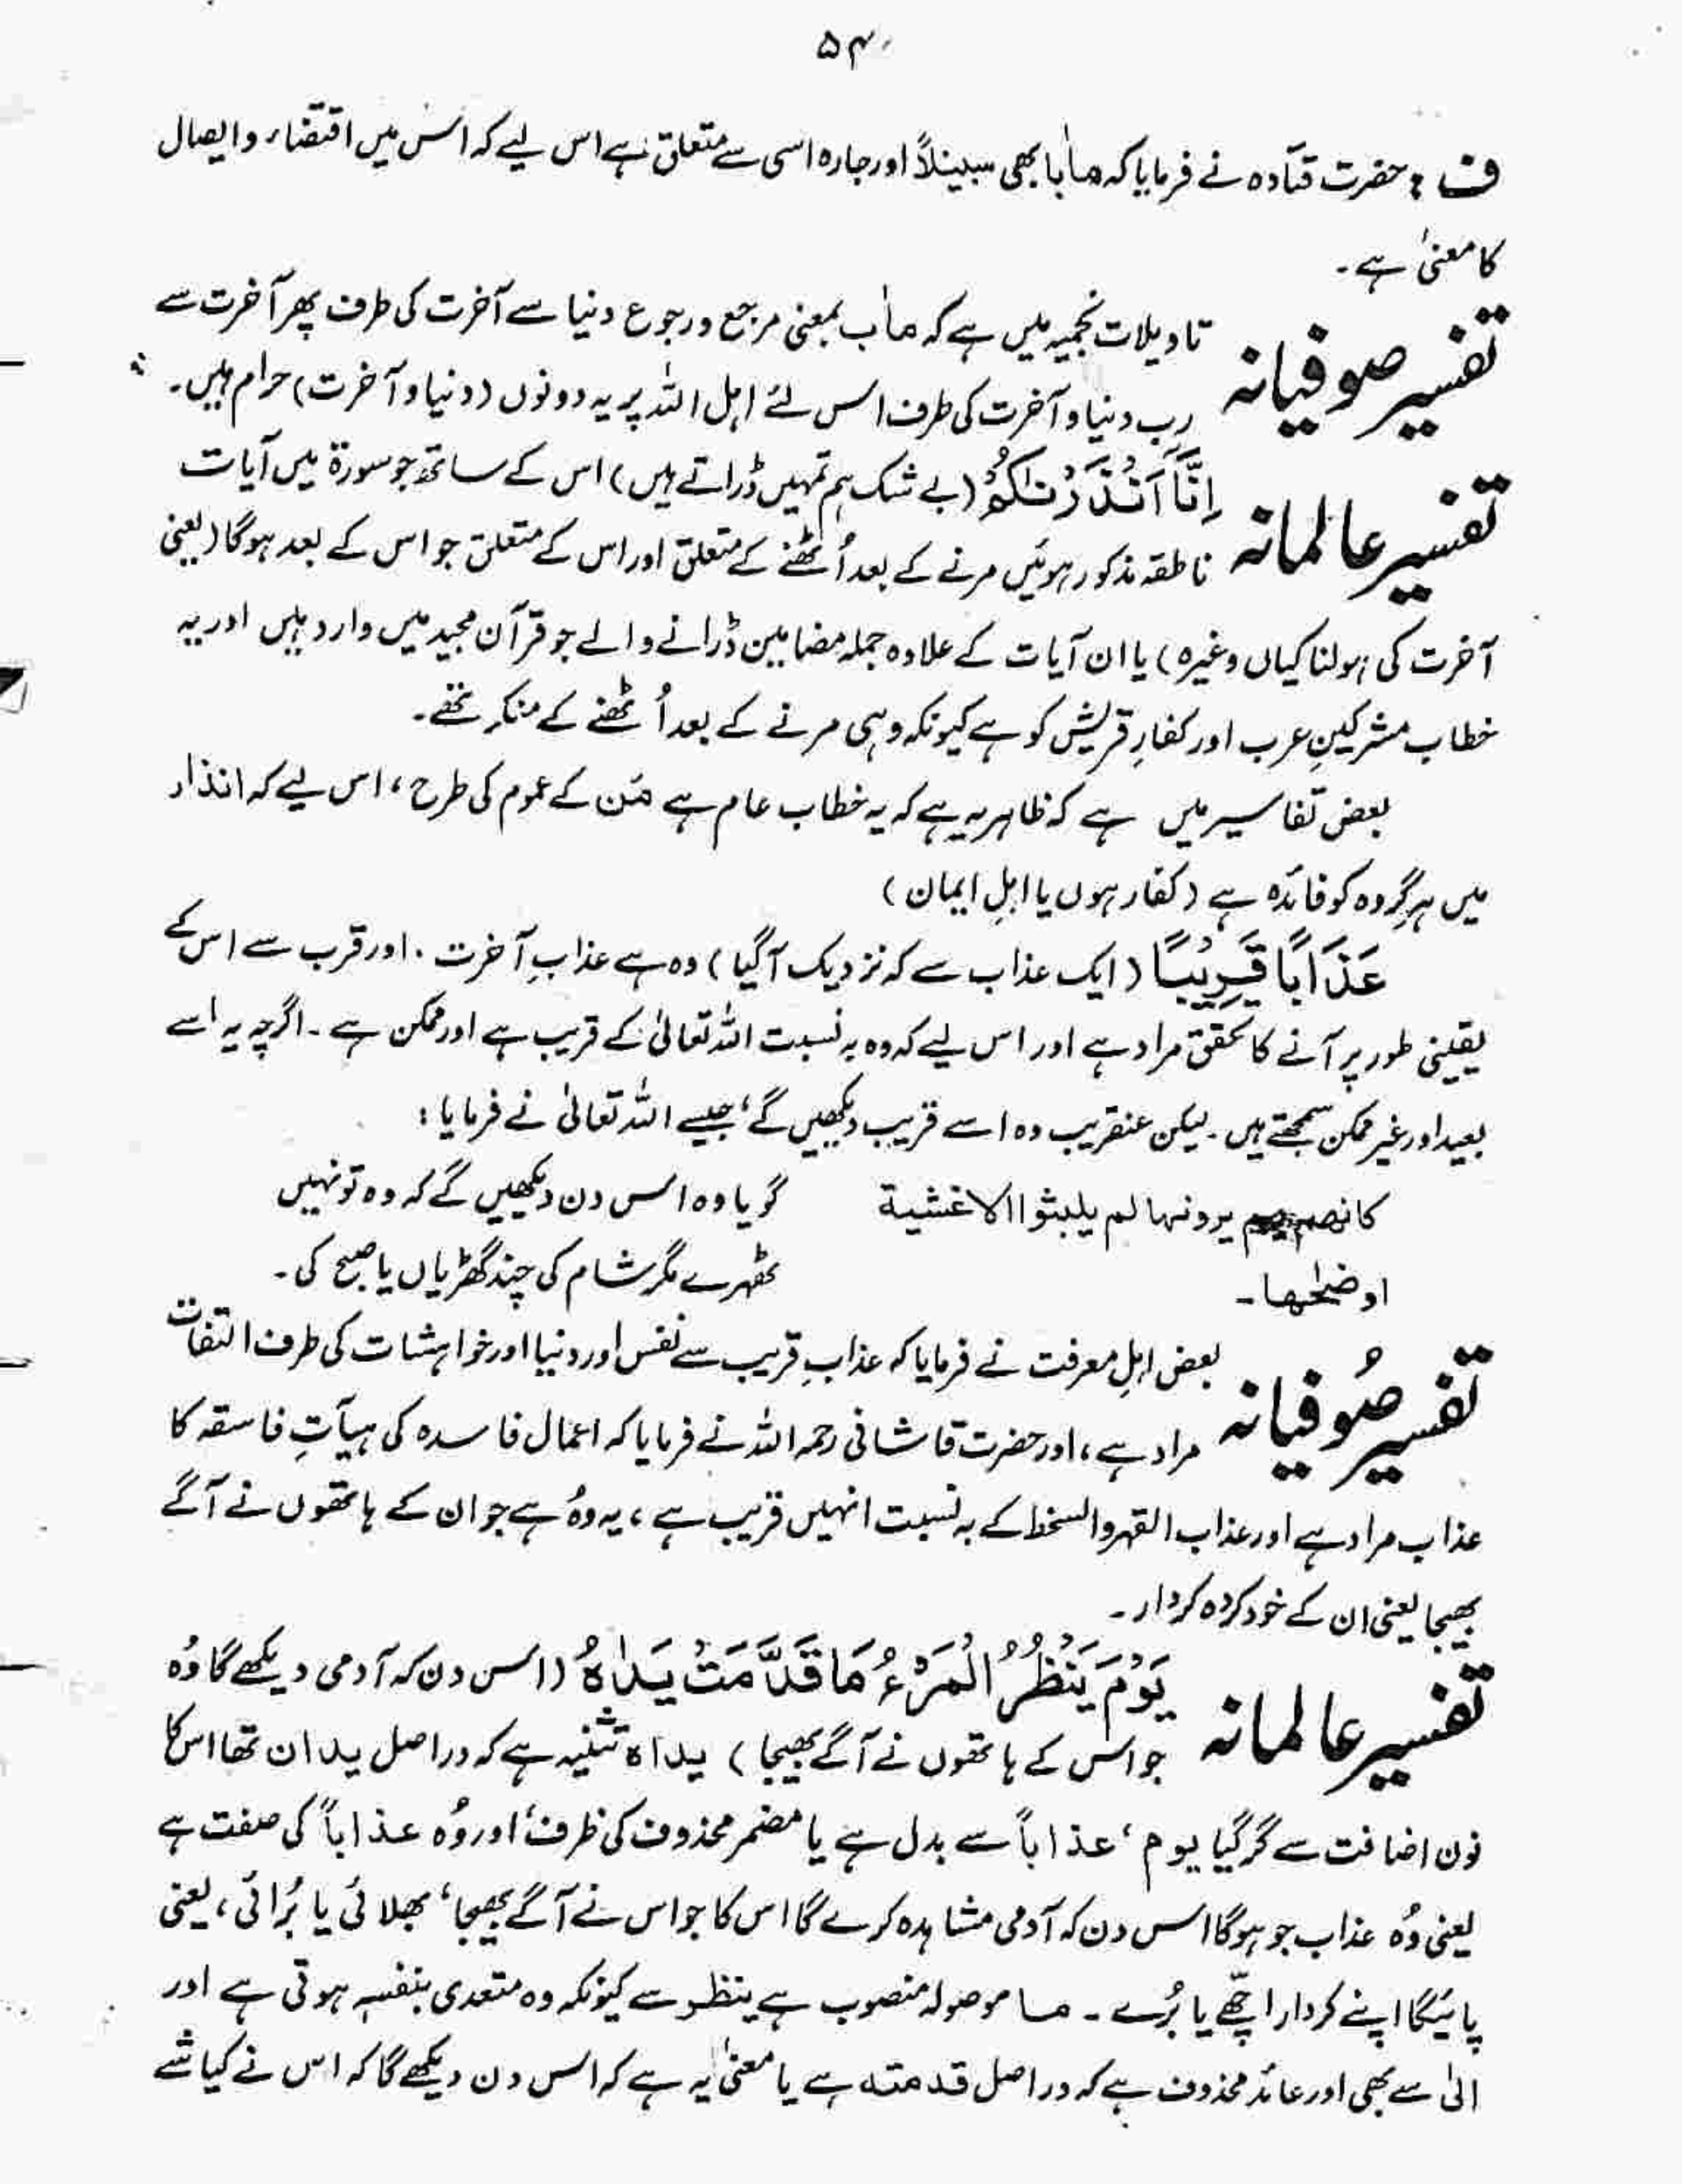 ۵۴
ف : حضرت قتادہ نے فرمایا کہ مآبا بھی سبیلاً اور جارہ اسی سے متعلق ہے اس لیے کہ اس میں اقتضاء و ایصال
کا معنیٰ ہے۔
تفسیر صوفیانہ تاویلات نجمیہ میں ہے کہ مآب بمعنی مرجع و رجوع دنیا سے آخرت کی طرف پھر آخرت سے
رب دنیا و آخرت کی طرف اس لئے اہل اللہ پر یہ دونوں (دنیا و آخرت) حرام ہیں۔
تفسیر عالمانہ اِنَّآ اَنْذَرْنٰکُمْ (بے شک ہم تمہیں ڈراتے ہیں) اس کے ساتھ جو سورۃ میں آیات
ناطقہ مذکور ہوئیں مرنے کے بعد اُٹھنے کے متعلق اور اس کے متعلق جو اس کے بعد ہوگا (یعنی
آخرت کی ہولناکیاں وغیرہ) یا ان آیات کے علاوہ جملہ مضامین ڈرانے والے جو قرآن مجید میں وارد ہیں اور یہ
خطاب مشرکینِ عرب اور کفارِ قریش کو ہے کیونکہ وہی مرنے کے بعد اُٹھنے کے منکر تھے۔
بعض تفاسیر میں ہے کہ ظاہر یہ ہے کہ یہ خطاب عام ہے مَن کے عموم کی طرح ، اس لیے کہ انذار
میں ہر گروہ کو فائدہ ہے (کفار ہوں یا اہلِ ایمان)
عَذَابًا قَرِیْبًا (ایک عذاب سے کہ نزدیک آگیا) وہ ہے عذابِ آخرت ۔ اور قرب سے اس کے
یقینی طور پر آنے کا تحقق مراد ہے اور اس لیے کہ وہ بہ نسبت اللہ تعالیٰ کے قریب ہے اور ممکن ہے ۔ اگرچہ یہ اسے
بعید اور غیر ممکن سمجھتے ہیں ۔ لیکن عنقریب وہ اسے قریب دیکھیں گے ، جیسے اللہ تعالیٰ نے فرمایا :
کانھم یوم یرونہا لم یلبثوا الا عشیۃ گویا وہ اس دن دیکھیں گے کہ وہ تو نہیں
او ضحٰھا ۔ ٹھہرے مگر شام کی چند گھڑیاں یا صبح کی ۔
تفسیر صُوفیانہ بعض اہلِ معرفت نے فرمایا کہ عذابِ قریب سے نفس اور دنیا اور خواہشات کی طرف التفات
مراد ہے ، اور حضرت قاشانی رحمہ اللہ نے فرمایا کہ اعمال فاسدہ کی ہیآتِ فاسقہ کا
عذاب مراد ہے اور عذاب القہر والسخط کے بہ نسبت انہیں قریب ہے ، یہ وہُ ہے جو ان کے ہاتھوں نے آگے
بھیجا یعنی ان کے خود کردہ کردار ۔
تفسیر عالمانہ یَوْمَ یَنْظُرُ الْمَرْءُ مَا قَدَّمَتْ یَدٰاہُ (اس دن کہ آدمی دیکھے گا وُہ
جو اس کے ہاتھوں نے آگے بھیجا) یداہ تثنیہ ہے کہ دراصل یدان تھا اس کا
نون اضافت سے گر گیا یوم ، عذاباً سے بدل ہے یا مضمر محذوف کی ظرف ، اور وُہ عذاباً کی صفت ہے
یعنی وُہ عذاب جو ہوگا اس دن کہ آدمی مشاہدہ کرے گا اس کا جو اس نے آگے بھیجا ، بھلائی یا بُرائی ، یعنی
پائیگا اپنے کردار اچھّے یا بُرے ۔ ما موصولہ منصوب ہے ینظر سے کیونکہ وہ متعدی بنفسہٖ ہوتی ہے اور
الیٰ سے بھی اور عائد محذوف ہے کہ دراصل قدمتہ ہے یا معنیٰ یہ ہے کہ اس دن دیکھے گا کہ اس نے کیا شے